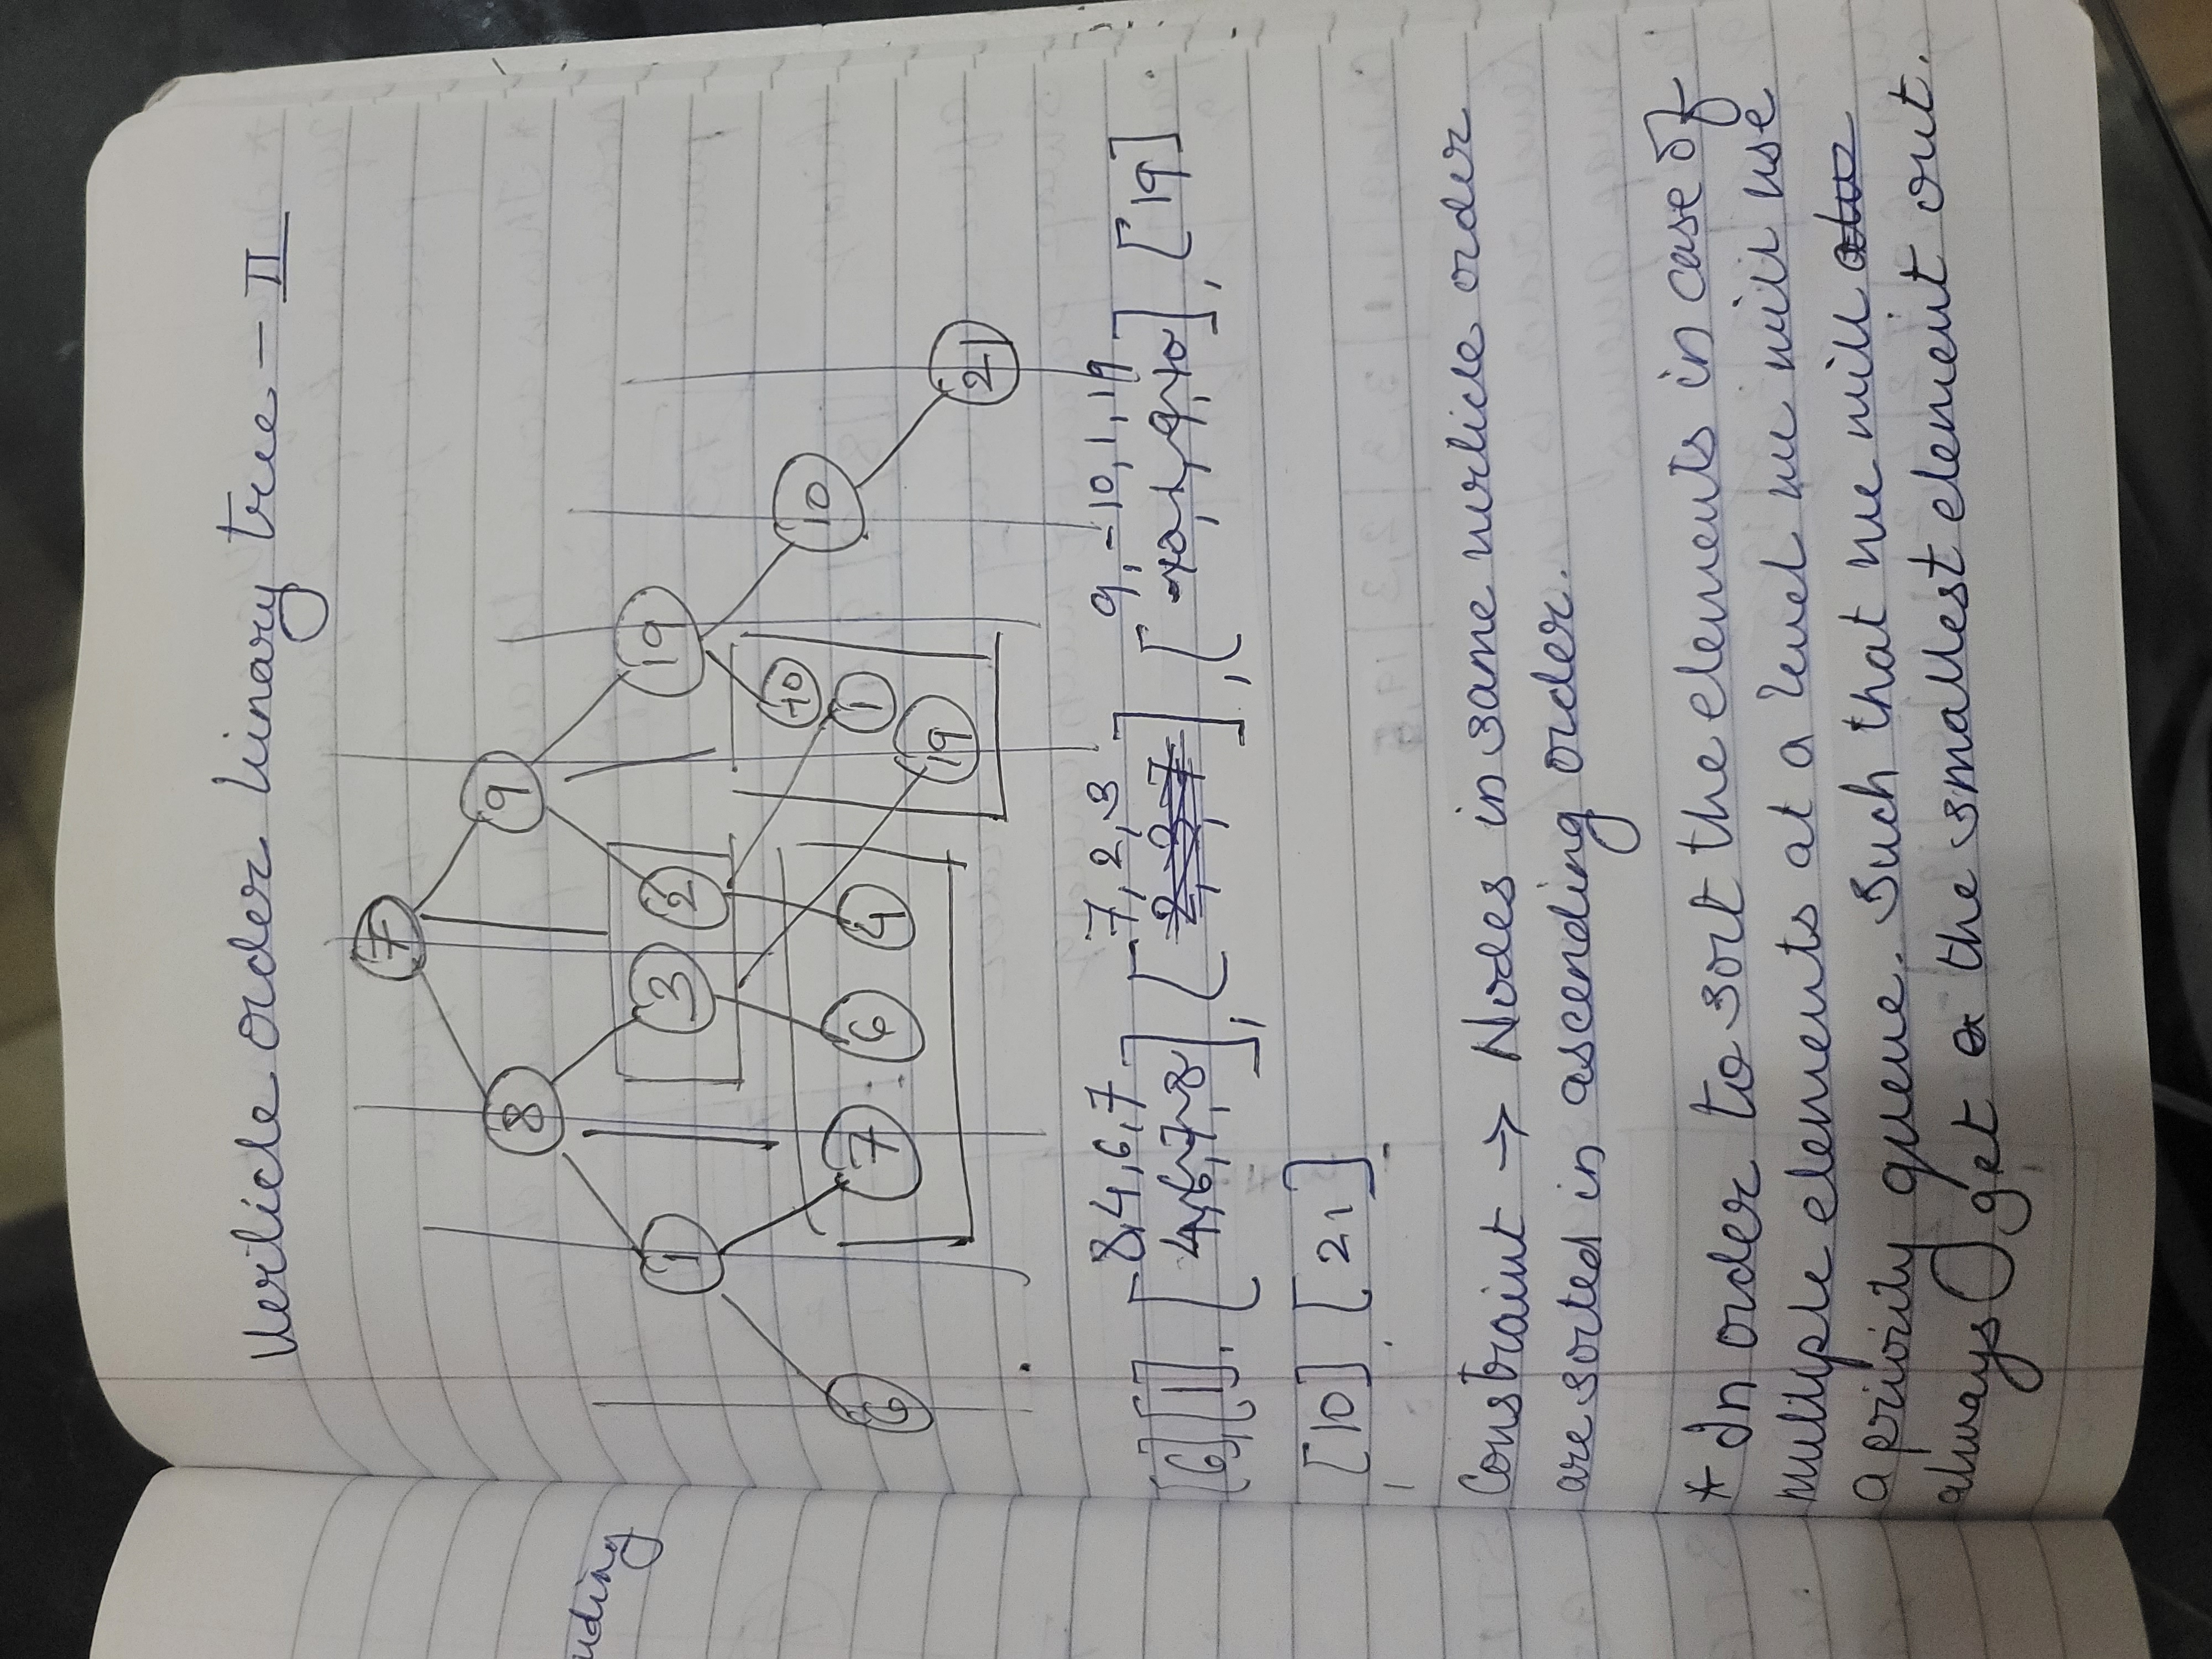 uding
Verticle order binary tree - II
7
8 9
1 3 2 19
-10 10
6 7 6 4 1
19
21
8,4,6,7 7,2,3 9,-10,1,19
[6],[1], [4,6,7,8], [2,3,7], [-10,1,9,10], [19]
[10] [21]
Constraint → Nodes in same verticle order
are sorted in ascending order.
* In order to sort the elements in case of
multiple elements at a level we will use
a priority queue. Such that we will
always get the smallest element out.